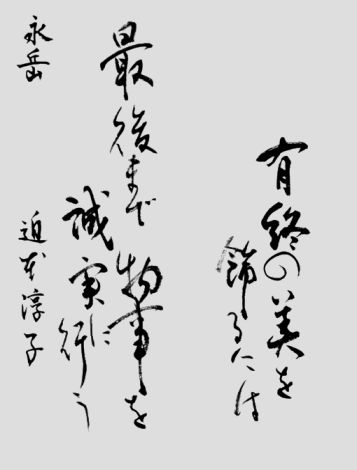 有終の美を
飾るには
最後まで物事を
誠実に行う
永岳
近本淳子